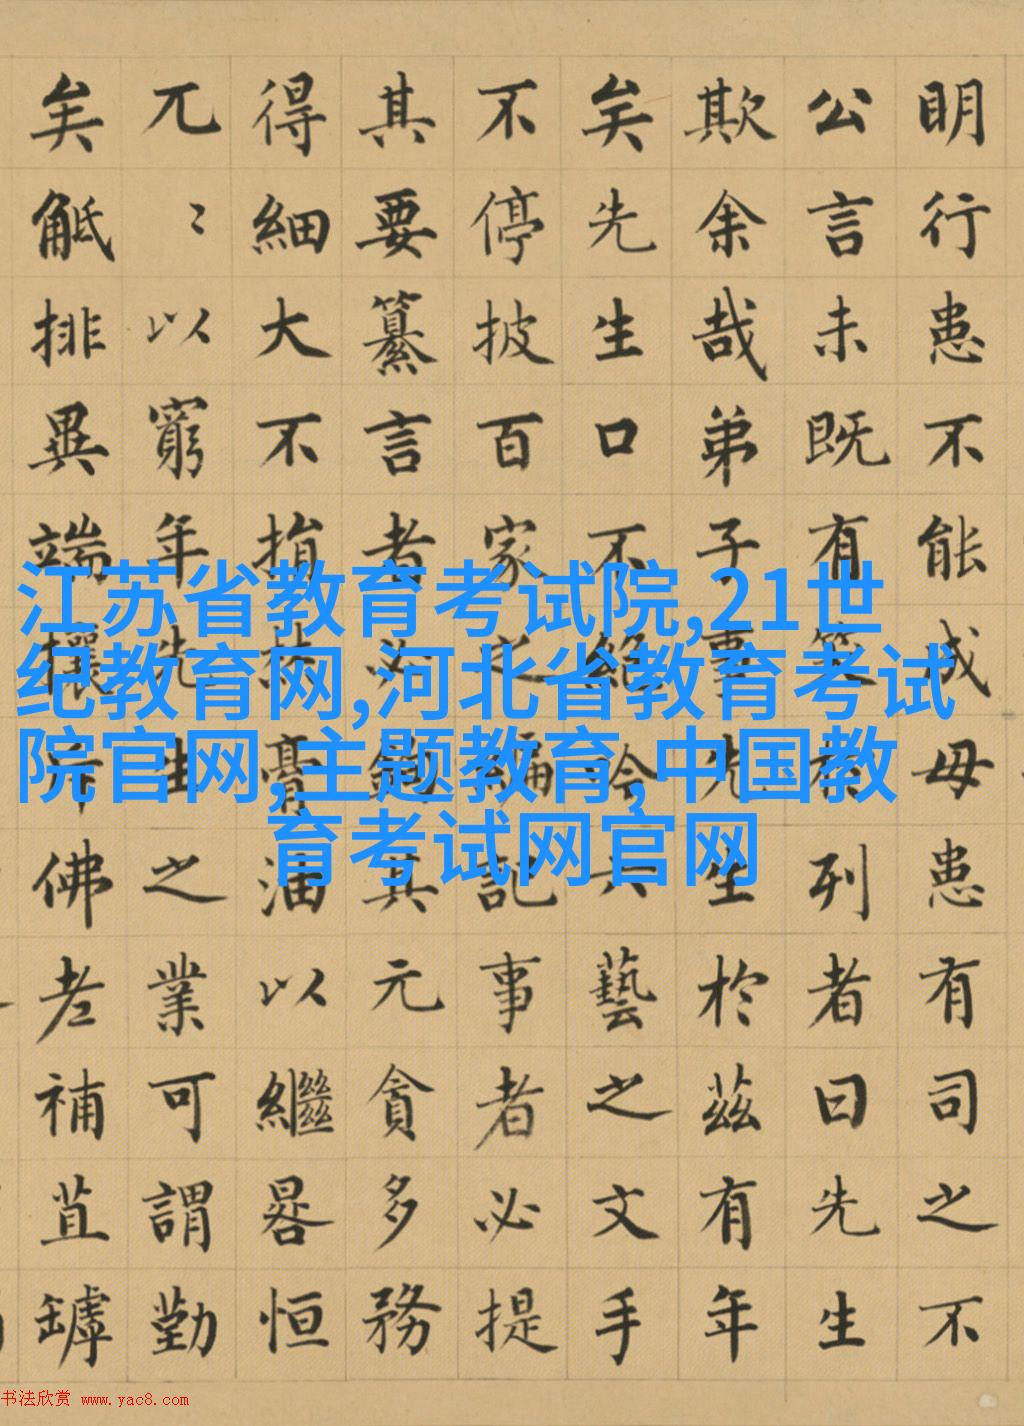 明行患不能成毋患有司之不
公言未既有笑於列者曰先生
欺余哉弟子事先生於茲有年
矣先生口不絶吟六藝之文手
不停披百家之編記事者必提
其要纂言者必鈎其元貪多務
得細大不捐焚膏油以繼晷恒
兀〻以窮年先生之業可謂勤
矣觝排異端攘斥佛老補苴罅
江苏省教育考试院,21世
纪教育网,河北省教育考试
院官网,主题教育,中国教
育考试网官网
书法欣赏 www.yac8.com